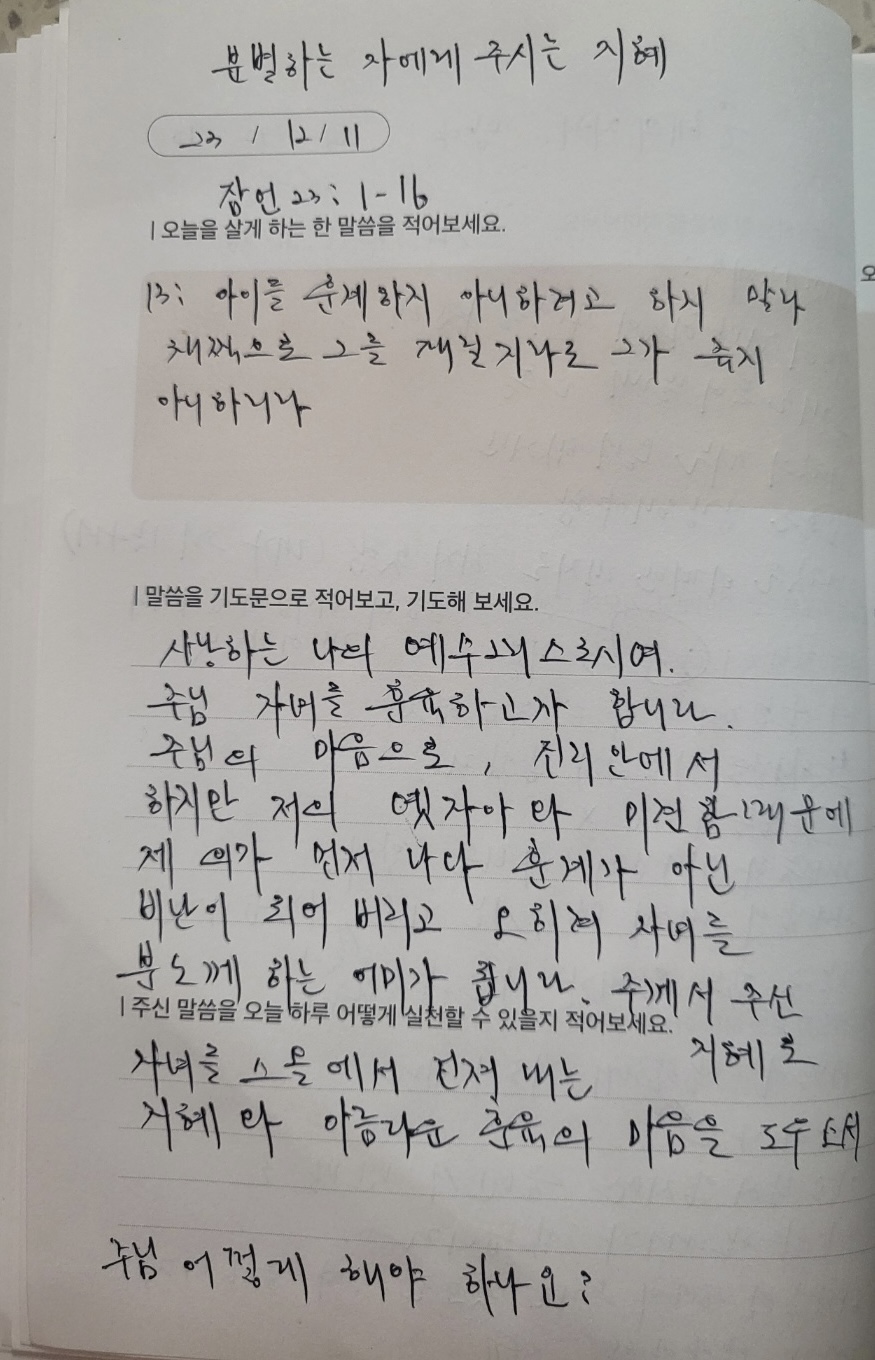 분별하는 자에게 주시는 지혜
23 / 12 / 11
잠언 23 : 1 - 16
| 오늘을 살게 하는 한 말씀을 적어보세요.
13 : 아이를 훈계하지 아니하려고 하지 말라
채찍으로 그를 때릴지라도 그가 죽지
아니하리라
| 말씀을 기도문으로 적어보고, 기도해 보세요.
사랑하는 나의 예수 그리스도시여.
주님 자녀를 훈육하고자 합니다.
주님의 마음으로, 진리 안에서
하지만 저의 옛자아와 미련함 때문에
제 의가 먼저 나다 훈계가 아닌
비난이 되어 버리고 오히려 자녀를
분노께 하는 어미가 됩니다. 주께서 주신
지혜로
| 주신 말씀을 오늘 하루 어떻게 실천할 수 있을지 적어보세요.
자녀를 스올에서 건져 내는
지혜와 아름다운 훈육의 마음을 도우소서
주님 어떻게 해야 하나요?
오